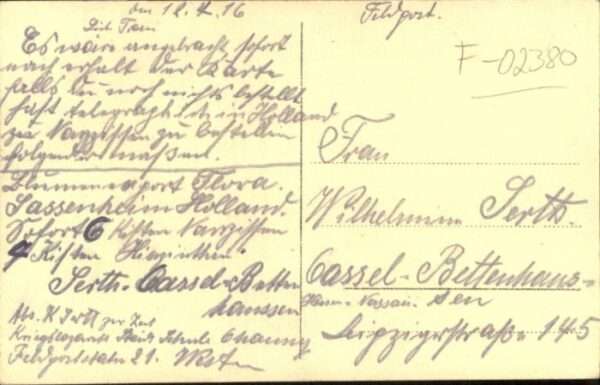 den 12.4.16
Feldpost.
Lieb Frau
Es wäre angebracht sofort
nach erhalt der Karte
falls du noch nichts bestellt
hast telegraphisch in Holland
zu Narzissen zu bestellen
folgendermaßen.
Blumenexport Flora.
Sassenheim Holland.
Sofort 6 Kisten Narzissen
4 Kisten Hiazinthen
Serth-Cassel-Betten
haussen
Abs. K Serth zur Zeit
Kriegslazarett Chauny
Feldpoststation 21. Westen
F-02380
Frau
Wilhelmine Serth.
Cassel-Bettenhaus-
Hessen-Nassau. sen
Leipzigerstraße 145